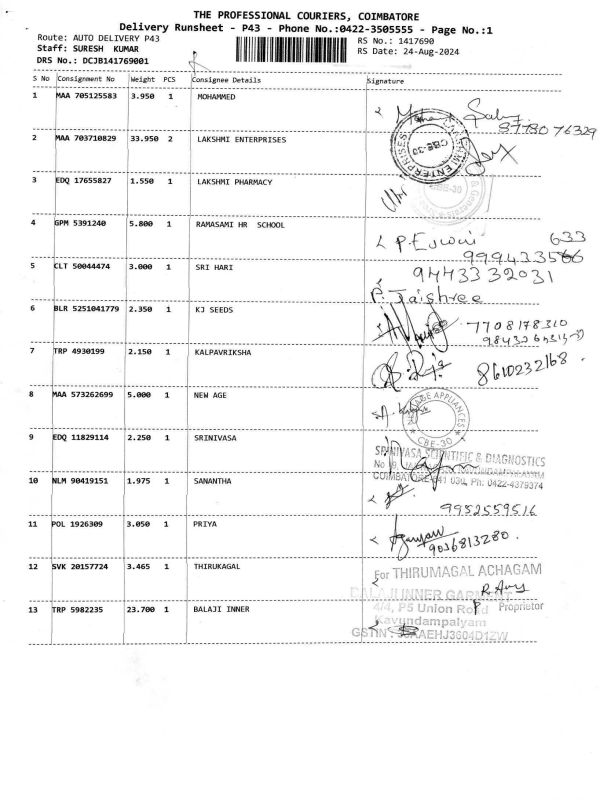 THE PROFESSIONAL COURIERS, COIMBATORE
Delivery Runsheet - P43 - Phone No.:0422-3505555 - Page No.:1
Route: AUTO DELIVERY P43
RS No.: 1417690
Staff: SURESH KUMAR
RS Date: 24-Aug-2024
DRS No.: DCJB141769001
S No Consignment No Weight PCS Consignee Details Signature
1 MAA 705125583 3.950 1 MOHAMMED
87780 76329
2 MAA 703710829 33.950 2 LAKSHMI ENTERPRISES
LAKSHMI ENTERPRISES CBE-30
3 EDQ 17655827 1.550 1 LAKSHMI PHARMACY
4 GPM 5391240 5.800 1 RAMASAMI HR SCHOOL
5 CLT 50044474 3.000 1 SRI HARI
94433 32031
P. Jaishree
6 BLR 5251041779 2.350 1 KJ SEEDS
7708178310
7 TRP 4930199 2.150 1 KALPAVRIKSHA
8610232168.
8 MAA 573262699 5.000 1 NEW AGE
APPLIANCES CBE-30
9 EDQ 11829114 2.250 1 SRINIVASA
SRINIVASA SCIENTIFIC & DIAGNOSTICS
COIMBATORE-641 030, Ph: 0422-4379374
10 NLM 90419151 1.975 1 SANANTHA
9952559516
11 POL 1926309 3.050 1 PRIYA
9036813280.
12 SVK 20157724 3.465 1 THIRUKAGAL
For THIRUMAGAL ACHAGAM
Proprietor
13 TRP 5982235 23.700 1 BALAJI INNER
BALAJI INNER GARMENT
4/4, P5 Union Road
Kavundampalyam